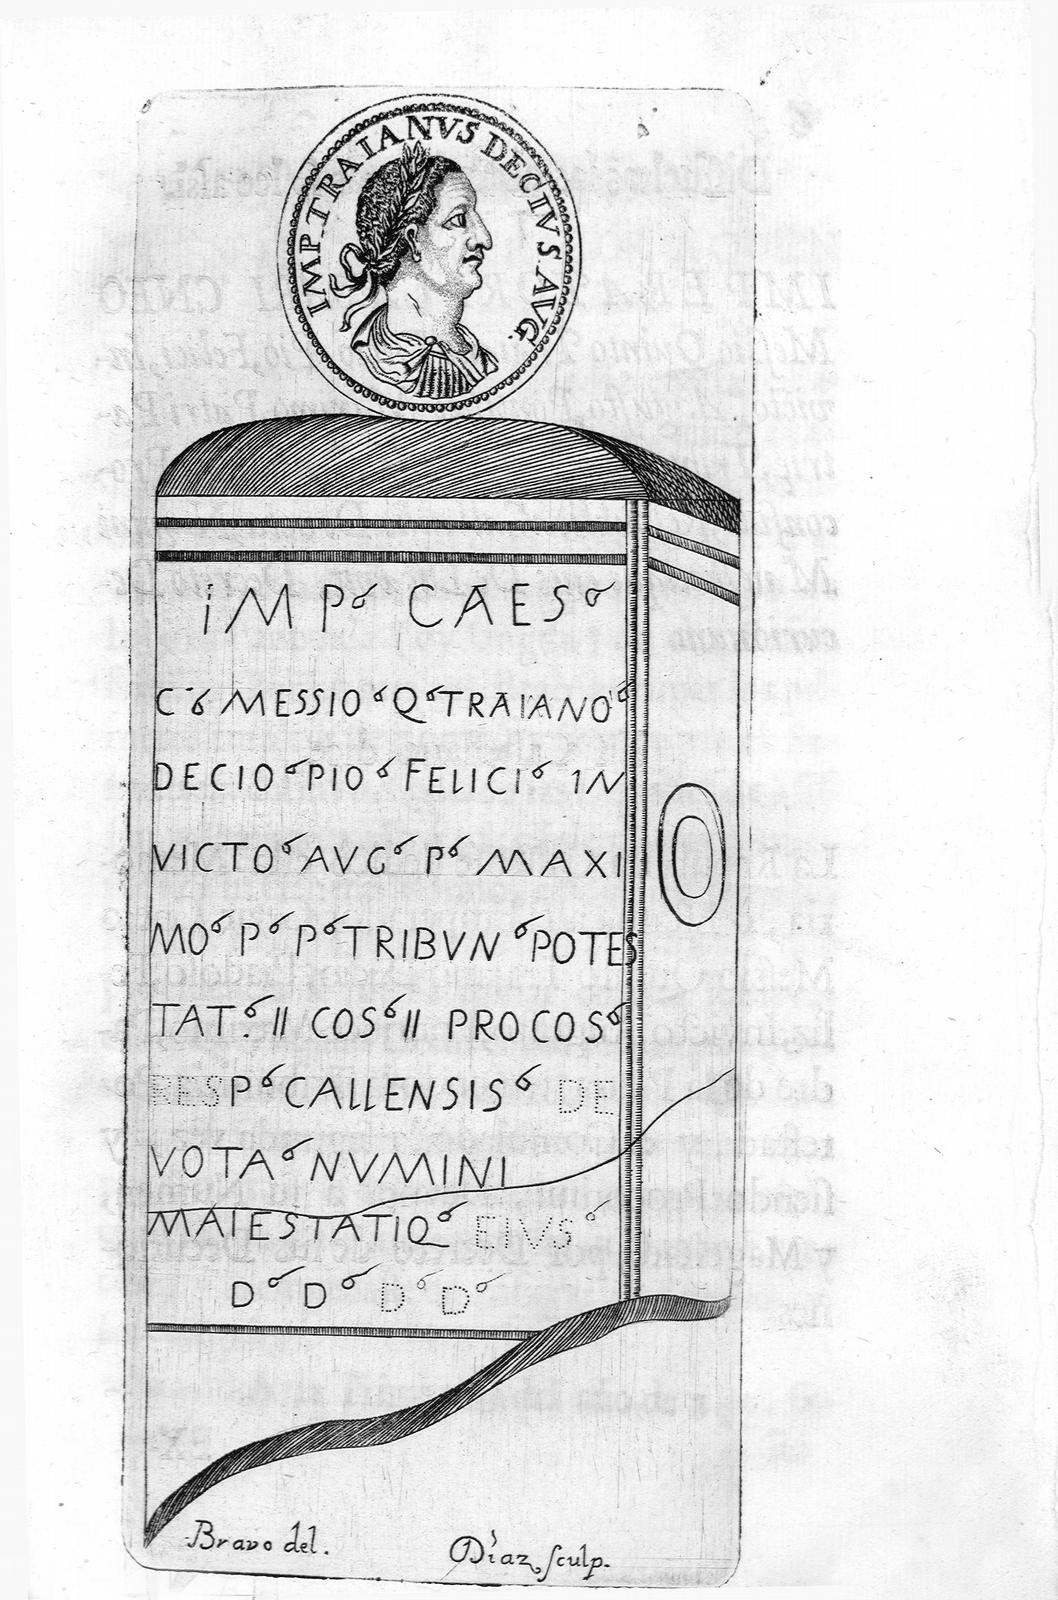 IMP. TRAIANVS DECIVS. AVG.
IMP CAES
C MESSIO Q TRAIANO
DECIO PIO FELICI IN
VICTO AVG P MAXI
MO P P TRIBVN POTES
TAT. II COS II PROCOS
RESP CALLENSIS DE
VOTA NVMINI
MAIESTATIQ EIVS
D D D D
Bravo del.
Diaz sculp.